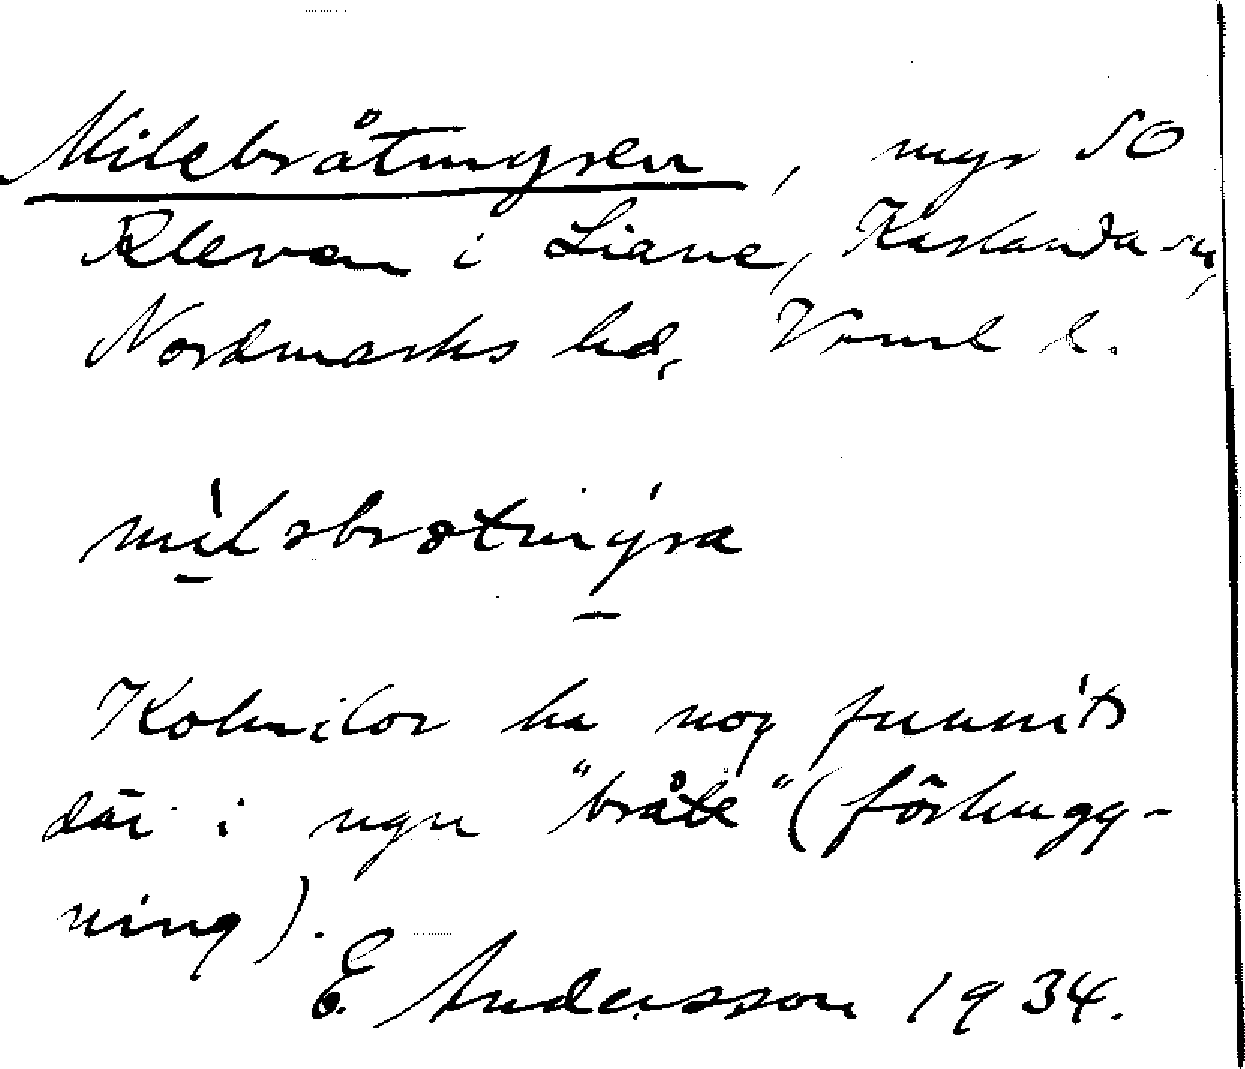 Milebråtmyren, myr SO
Kleven i Liane, Karlanda sn,
Nordmarks hd, Vrml l.
Kolmilor ha nog funnits
där i ngn "bråte" (förhugg-
ning).
E. Andersson 1934.